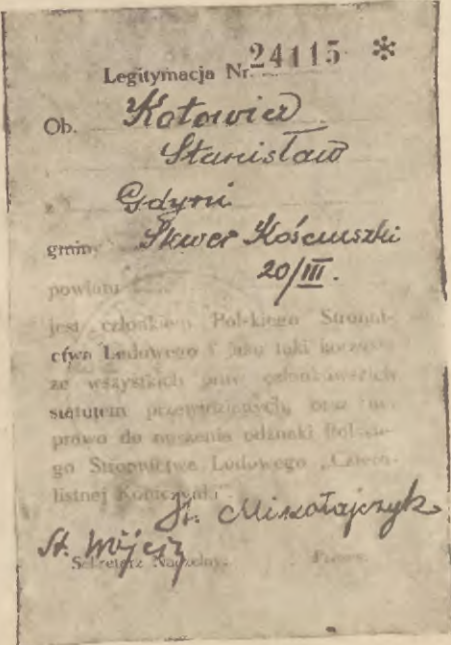 Legitymacja Nr. 24115 *
Ob. Kotowicz
Stanisław
z Gdyni
gminy Skwer Kościuszki
powiatu 20/III.
jest członkiem Polskiego Stronni-
ctwa Ludowego i jako taki korzysta
ze wszystkich praw członkowskich
statutem przewidzianych, oraz ma
prawo do noszenia odznaki Polskie-
go Stronnictwa Ludowego „Cztero-
listnej Koniczynki".
St. Mikołajczyk
St. Wójcik
Sekretarz Naczelny. Prezes.